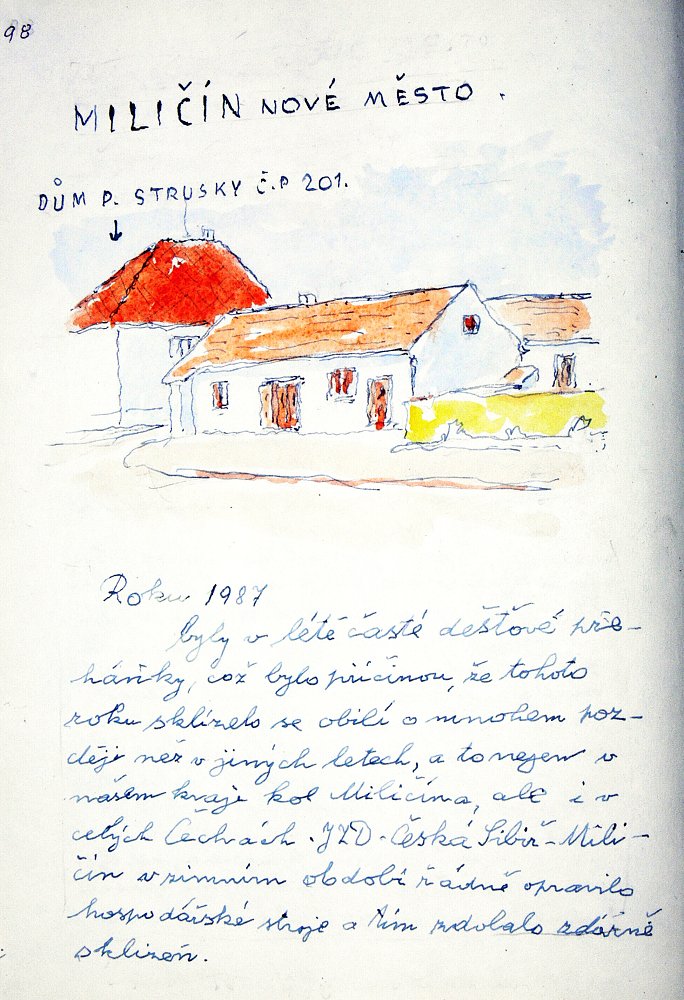 98
MILIČÍN NOVÉ MĚSTO.
DŮM P. STRUSKY Č.P 201.
Roku 1987
byly v létě časté dešťové pře-
háňky, což bylo příčinou, že tohoto
roku sklízelo se obilí o mnohem poz-
ději než v jiných letech, a to nejen v
našem kraje kol Miličína, ale i v
celých Čechách. JZD. Česká Sibiř-Mili-
čín v zimním období řádně opravilo
hospodářské stroje a tím zdolalo zdárně
sklizeň.